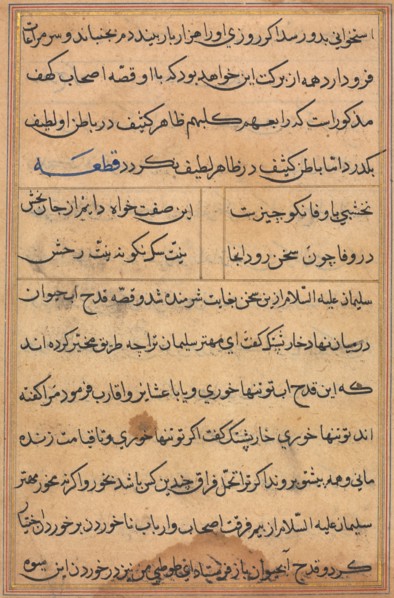 سخوانی بدو رسد اکر روزی او را هزار بار بیند دم بجنباند و سر مراعات
فرود آرد همه از برکت این خواهد بود که با او قصه اصحاب کهف
مذکور است که رابعهم کلبهم ظاهر کثیف در باطن او لطیف
بکدرد اما باطن کثیف در ظاهر لطیف نکردد قطعه
نخشبی با وفا نکو چیزیست این صفت خواه دایم از جان بخش
در وفا چون سخن رود اینجا نیّت سک نکو نه نیّت رخش
سلیمان علیه السلام ازین سخن بغایت شرمنده شد و قصه قدح آب حیوان
در میان نهاد خارپشتک کفت ای مهتر سلیمان ترا چه طریق مخیر کرده اند
که این قدح آب تو تنها خوری و یا با عشایر و اقارب فرمود مرا کفته
اند تو تنها خوری خارپشتک کفت اکر تو تنها خوری و تا قیامت زنده
مانی و همه پیش تو بروند اکر ترا تحمل فراق چندین کس باشد بخور و اکر نه مخور مهتر
سلیمان علیه السلام از بیم فرقت اصحاب و ارباب ناخوردن بر خوردن اختیار
کرد و قدح آبحیوان باز فرستاد ای طوطی من نیز در خوردن این میوه